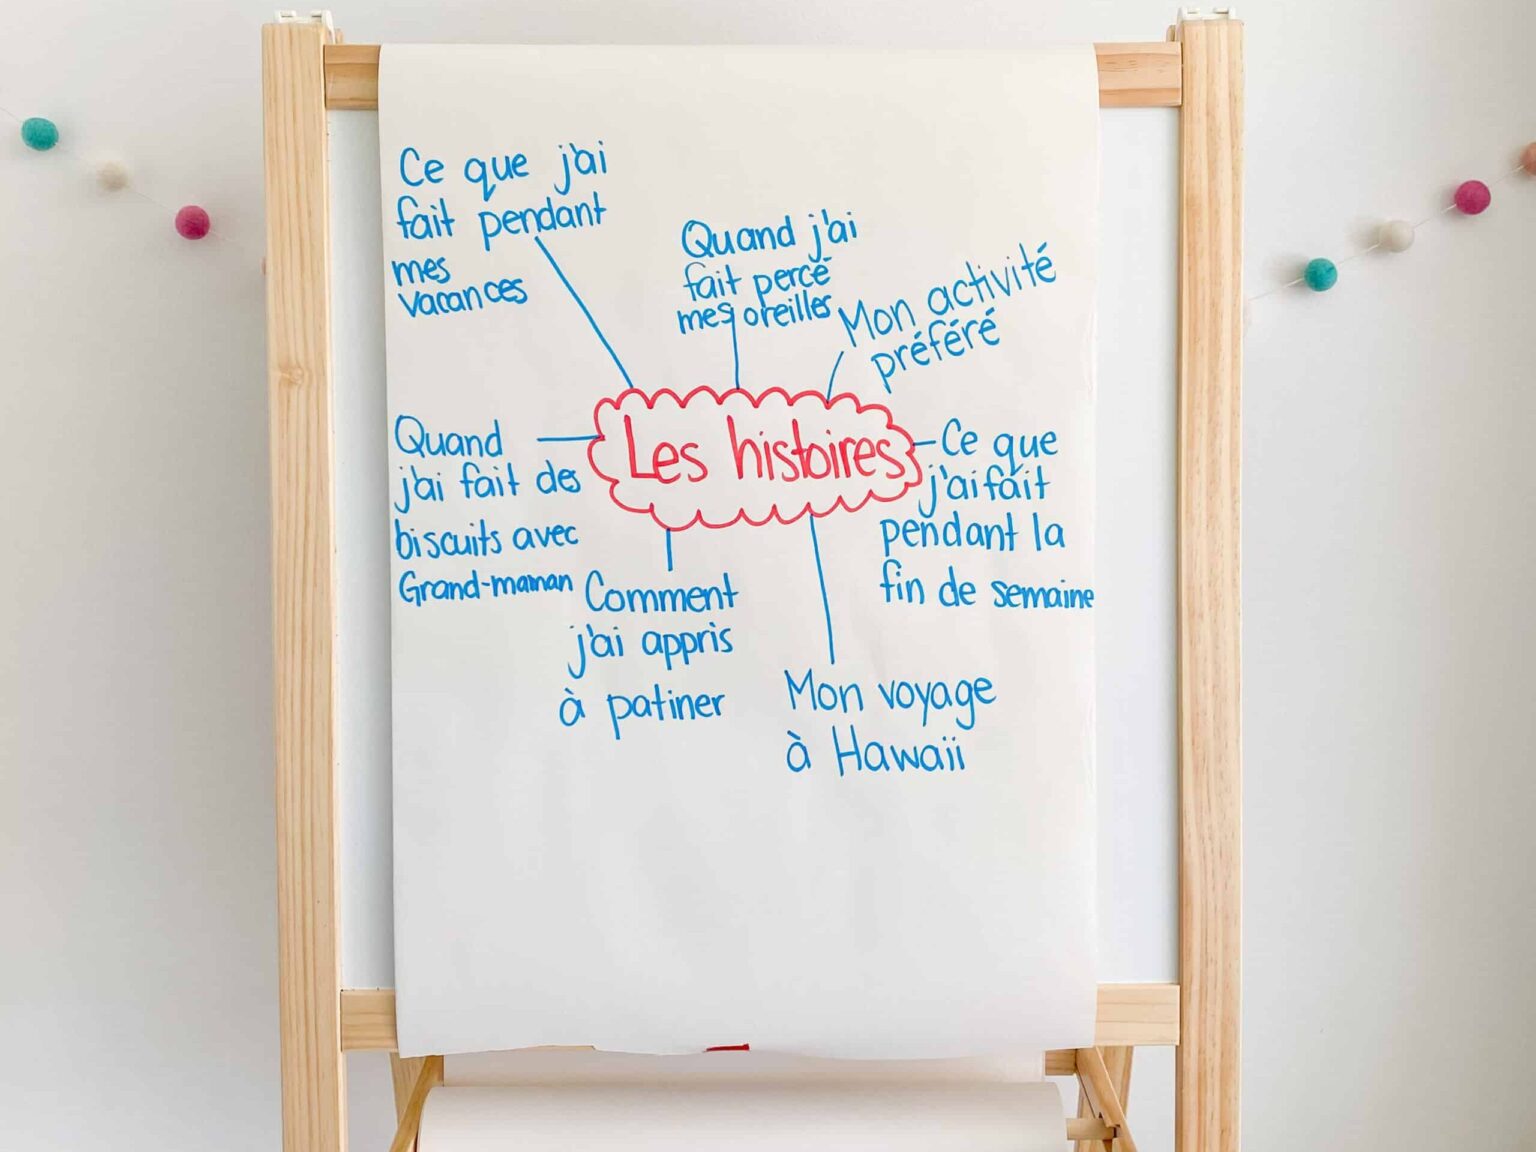 Ce que j'ai
fait pendant
mes
vacances
Quand j'ai
fait percé
mes oreilles
Mon activité
préféré
Les histoires
Quand
j'ai fait des
biscuits avec
Grand-maman
Ce que
j'ai fait
pendant la
fin de semaine
Comment
j'ai appris
à patiner
Mon voyage
à Hawaii